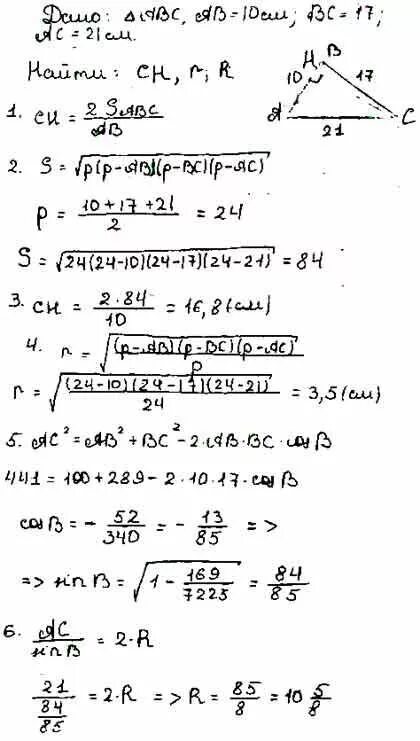 Дано: △ABC, AB=10см; BC=17;
AC=21см.
Найти: CH, r; R
H B
10 17
A C
21
1. CH = 2 S ABC / AB
2. S = √(p(p-AB)(p-BC)(p-AC))
p = (10+17+21)/2 = 24
S = √(24(24-10)(24-17)(24-21)) = 84
3. CH = 2·84/10 = 16,8(см)
4. r = √((p-AB)(p-BC)(p-AC)/p)
r = √((24-10)(24-17)(24-21)/24) = 3,5(см)
5. AC² = AB² + BC² - 2·AB·BC·cosB
441 = 100 + 289 - 2·10·17·cosB
cosB = - 52/340 = - 13/85 =>
=> sinB = √(1 - 169/7225) = 84/85
6. AC/sinB = 2·R
21/(84/85) = 2·R => R = 85/8 = 10 5/8